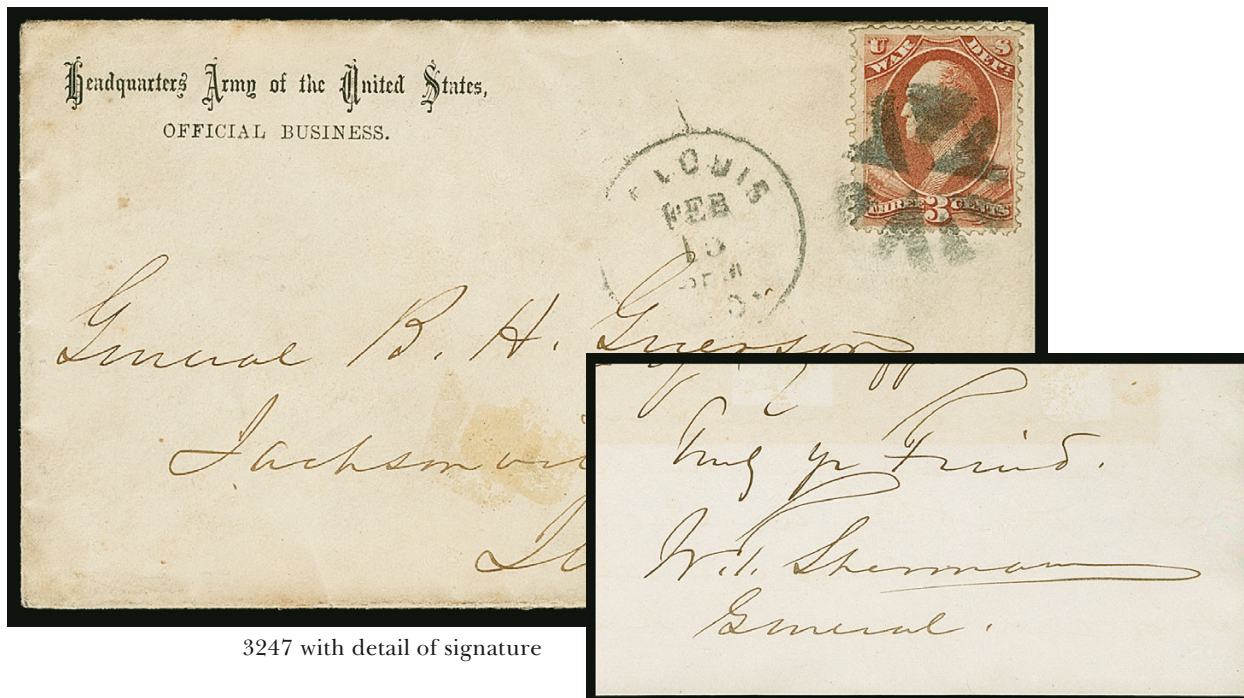 Headquarters Army of the United States,
OFFICIAL BUSINESS.
U S
WAR DEPT
THREE 3 CENTS
LOUIS
FEB
General B. H. Grierson
Jacksonvi
Truly yr Friend.
W. T. Sherman
General.
3247 with detail of signature